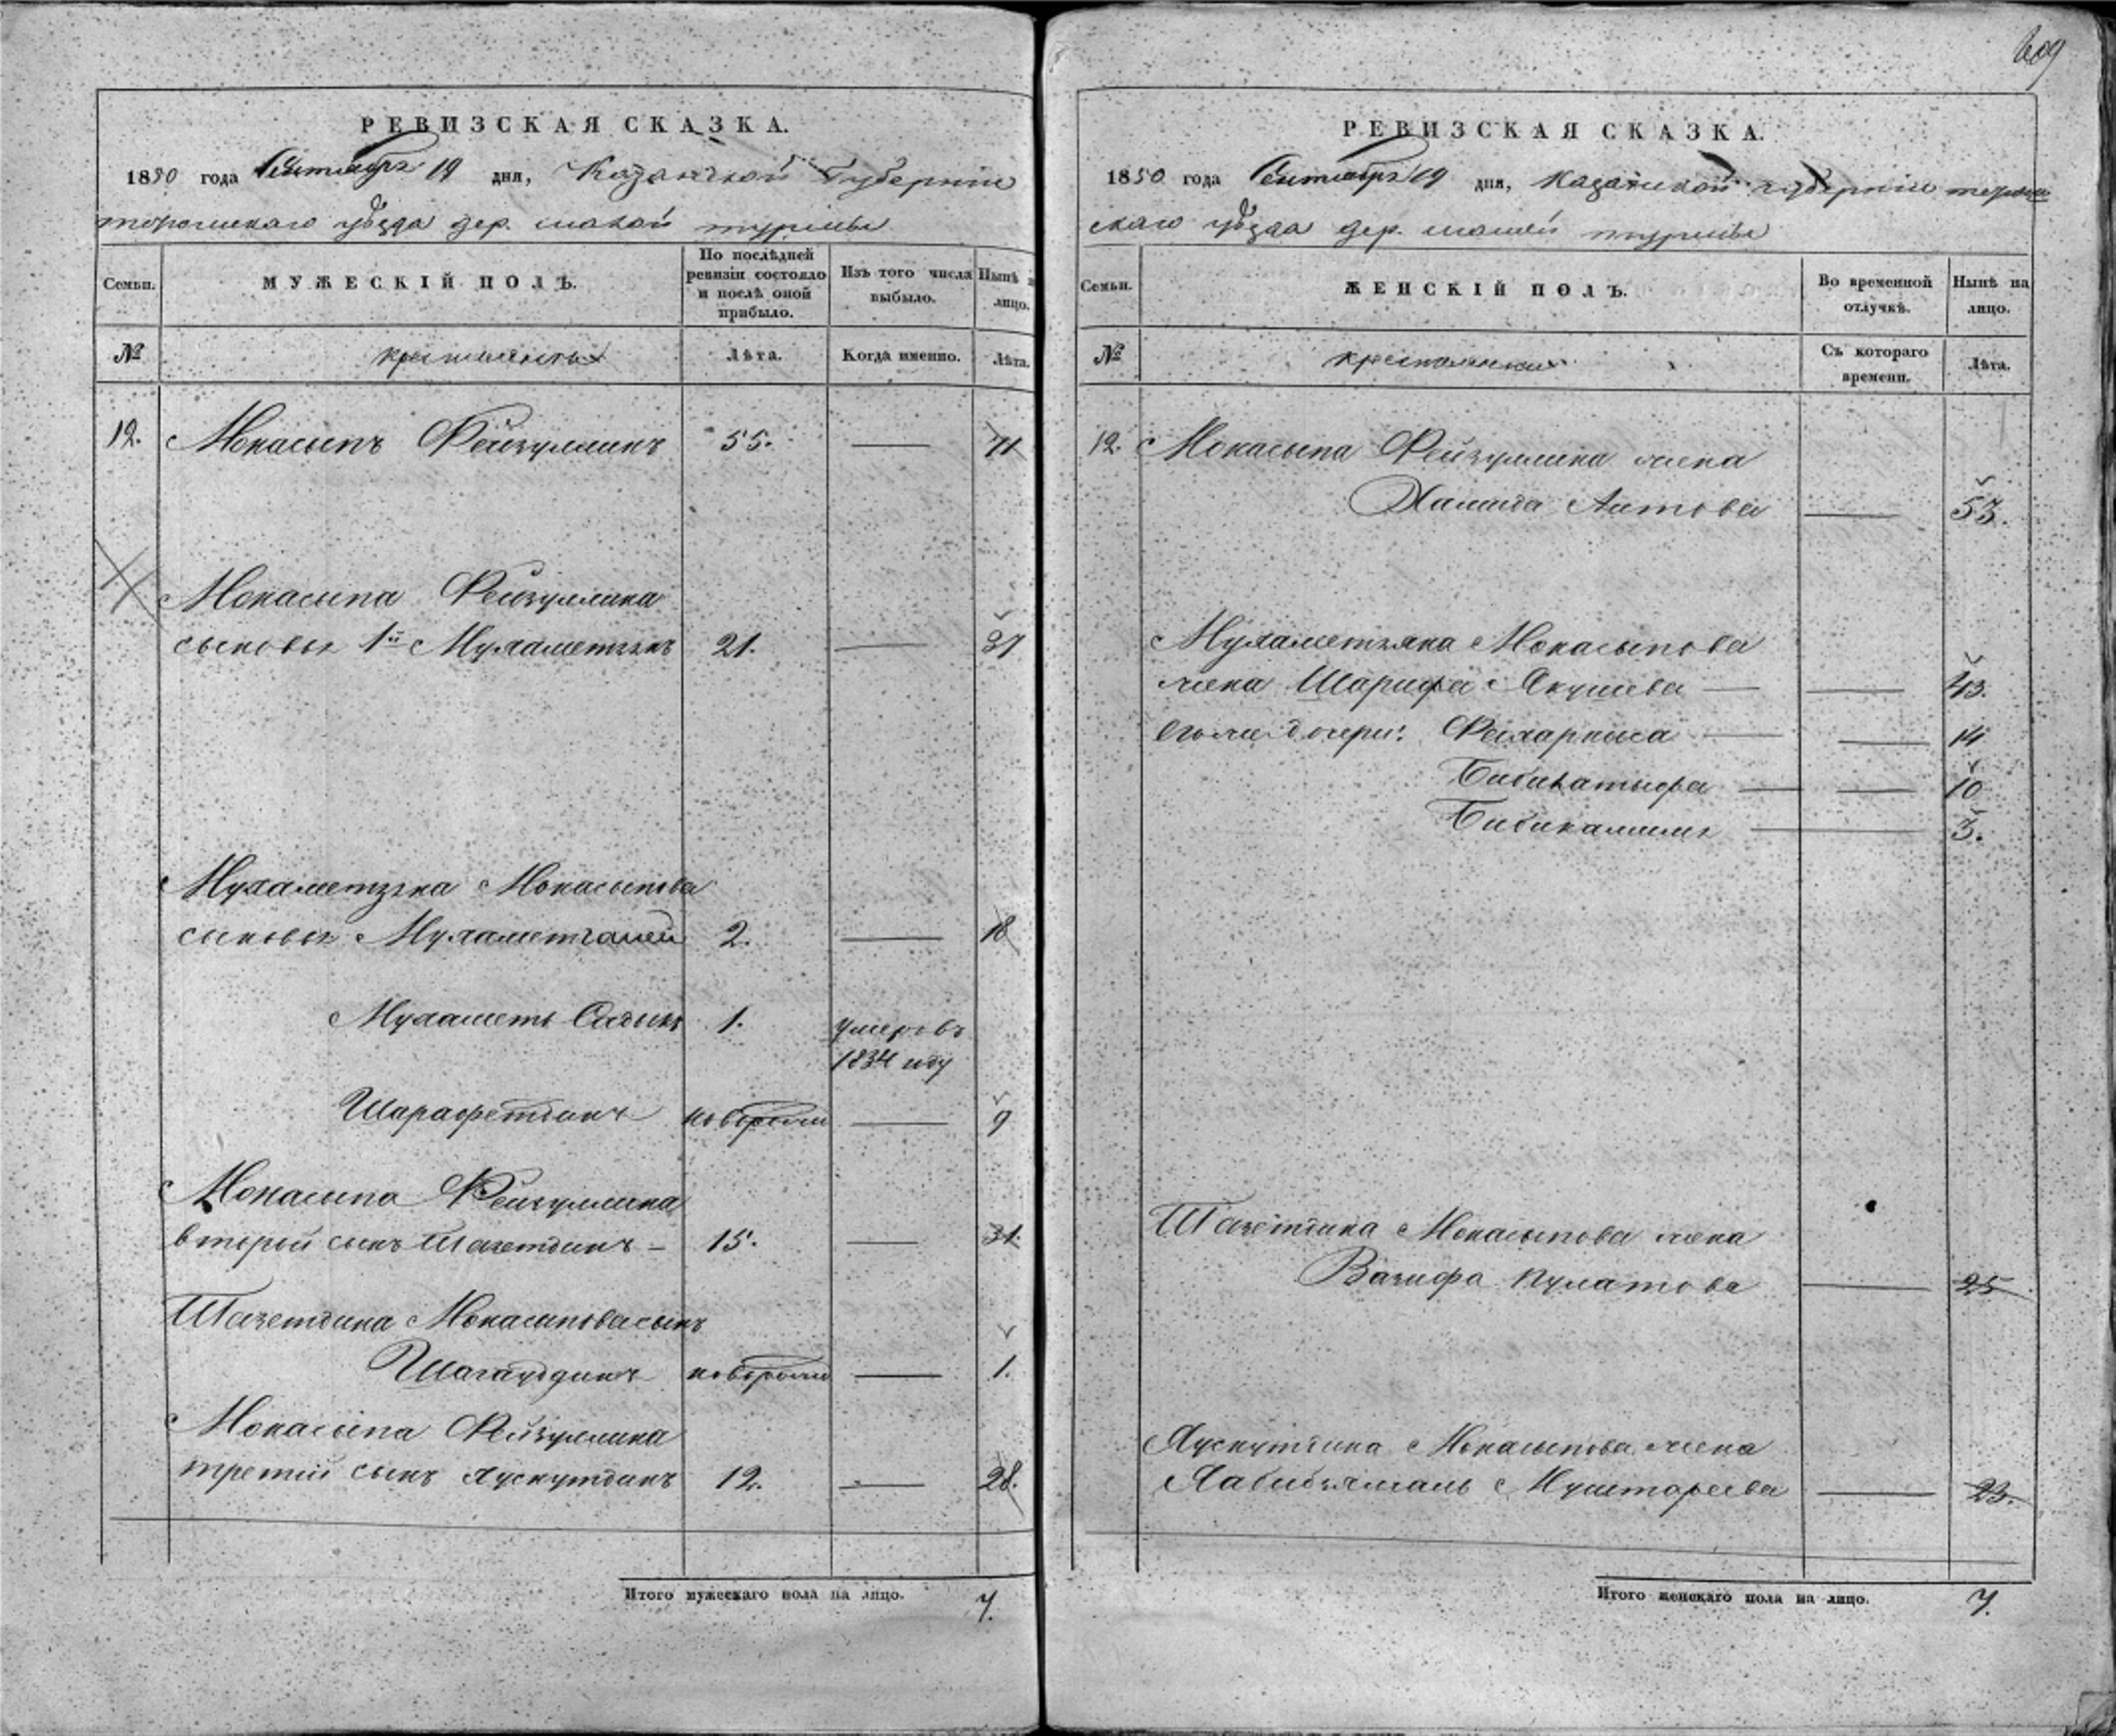 609
РЕВИЗСКАЯ СКАЗКА.
1850 года Сентября 19 дня, Казанской Губернии
уѣзда дер.
Семьи.
МУЖЕСКІЙ ПОЛЪ.
По послѣдней ревизіи состояло и послѣ оной прибыло.
Изъ того числа выбыло.
Нынѣ на лицо.
№
Лѣта.
Когда именно.
Лѣта.
12. Мокасыпъ Фейзуллинъ 55. — 71
Мокасыпа Фейзуллина
сыновья 1й Мухаметзянъ 21. — 37
Мухаметзяна Мокасыпова
сыновья Мухаметгалей 2. — 18
Мухаметъ Садыкъ 1. умеръ въ
1834 году
Шарафетдинъ новорожд — 9
Мокасыпа Фейзуллина
второй сынъ Шагетдинъ — 15. — 31.
Шагетдина Мокасыпова сынъ
Шагаудинъ новорожд — 1.
Мокасыпа Фейзуллина
третій сынъ Яускутдинъ 12. — 28.
Итого мужескаго пола на лицо. 7.
РЕВИЗСКАЯ СКАЗКА.
1850 года Сентября 19 дня, Казанской губерніи
скаго уѣзда дер.
Семьи.
ЖЕНСКІЙ ПОЛЪ.
Во временной отлучкѣ.
Нынѣ на лицо.
№
Съ котораго времени.
Лѣта.
12. Мокасыпа Фейзуллина жена
Халида Аитова — 53.
Мухаметзяна Мокасыпова
жена Шарифа Якушева — — 43.
его же дочери: — — 14
— — 10
Бибикамиля — 3.
Шагетдина Мокасыпова жена
Вазифа Кулатова — 25
Яускутдина Мокасыпова жена
Хабибзямаль Муштареева — 23.
Итого женскаго пола на лицо. 7.